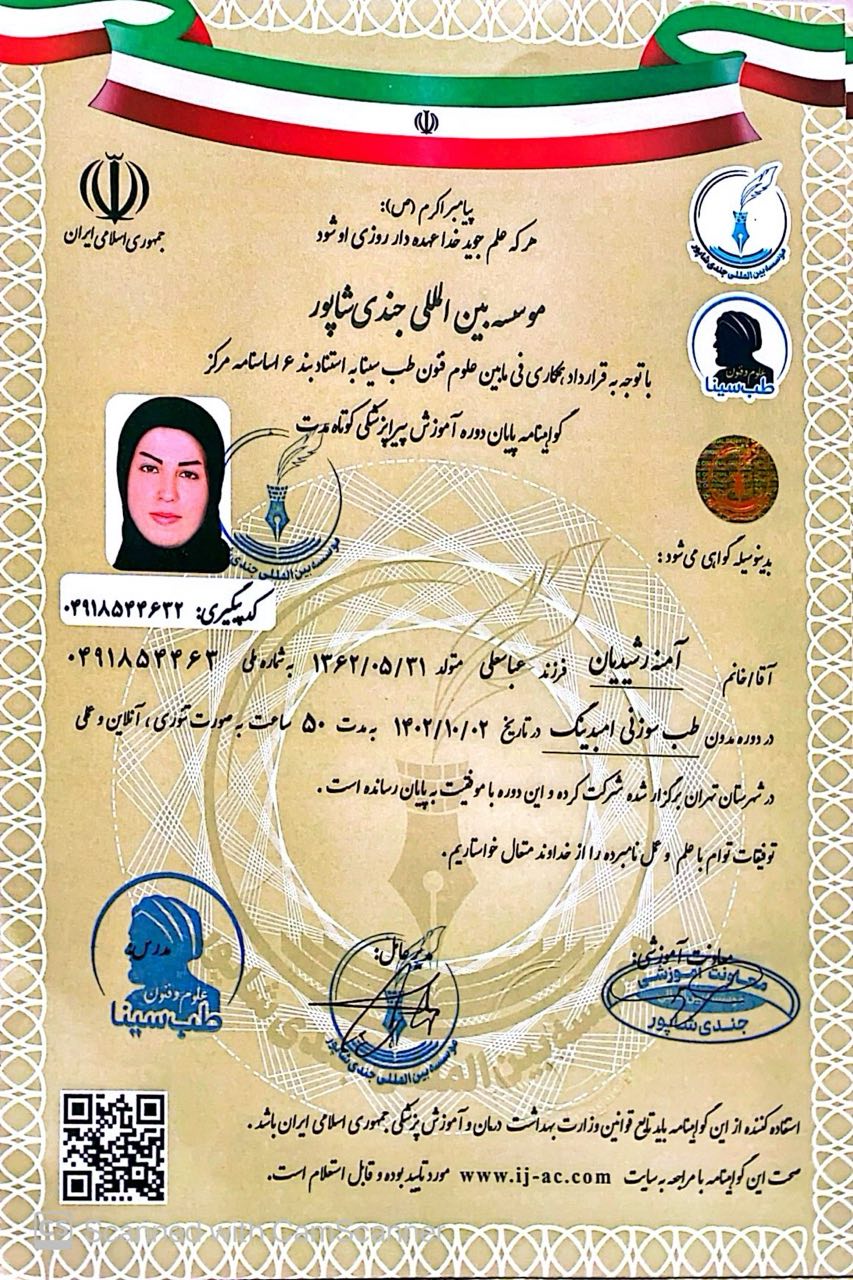 جمهوری اسلامی ایران
پیامبر اکرم (ص):
هر که علم جوید خدا عهده دار روزی او شود
موسسه بین المللی جندی شاپور
موسسه بین المللی جندی شاپور
علوم و فنون
طب سینا
با توجه به قرارداد همکاری فی مابین علوم فنون طب سینا به استناد بند ۶ اساسنامه مرکز
گواهینامه پایان دوره آموزش پیراپزشکی کوتاه مدت
موسسه بین المللی جندی
بدینوسیله گواهی می شود:
کد پیگیری: ۰۴۹۱۸۵۴۴۶۳۲
آقا/خانم آمنه رشیدیان فرزند عباسعلی متولد ۱۳۶۲/۰۵/۳۱ به شماره ملی ۰۴۹۱۸۵۴۴۶۳
در دوره مدون طب سوزنی امبدینگ در تاریخ ۱۴۰۲/۱۰/۰۲ به مدت ۵۰ ساعت به صورت تئوری، آنلاین و عملی
در شهرستان تهران برگزار شده شرکت کرده و این دوره با موفقیت به پایان رسانده است.
توفیقات توام با علم و عمل نامبرده را از خداوند متعال خواستاریم.
معاونت آموزشی:
معاونت آموزشی
جندی شاپور
مدیرعامل:
موسسه بین المللی جندی شاپور
مدرس:
علوم و فنون
طب سینا
استفاده کننده از این گواهینامه باید تابع قوانین وزارت بهداشت درمان و آموزش پزشکی جمهوری اسلامی ایران باشد.
صحت این گواهینامه با مراجعه به سایت www.ij-ac.com مورد تایید بوده و قابل استعلام است.
CS Scanned with CamScanner